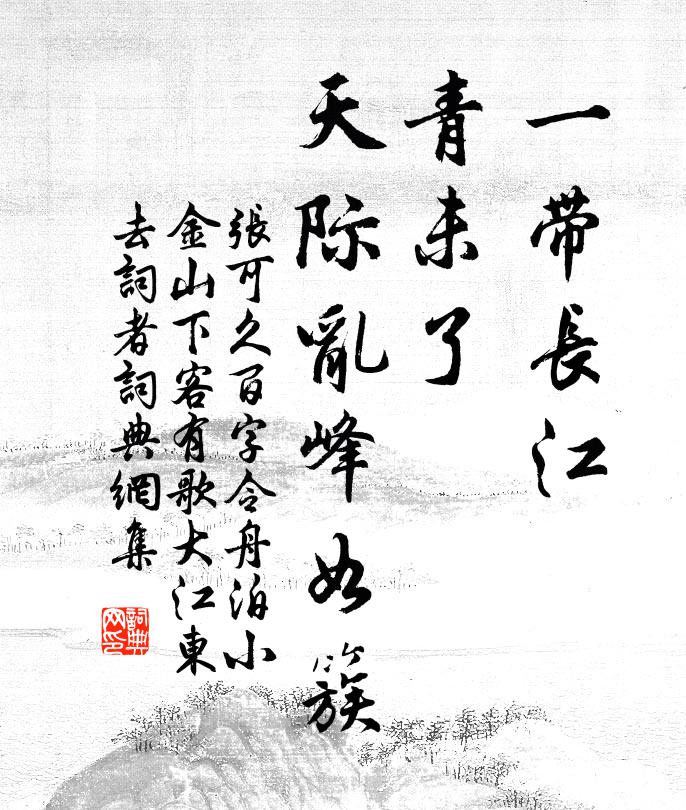 一帶長江
青未了
天際亂峰如簇
張可久百字令舟泊小
金山下客有歌大江東
去詞者詞典網集
詞典網印